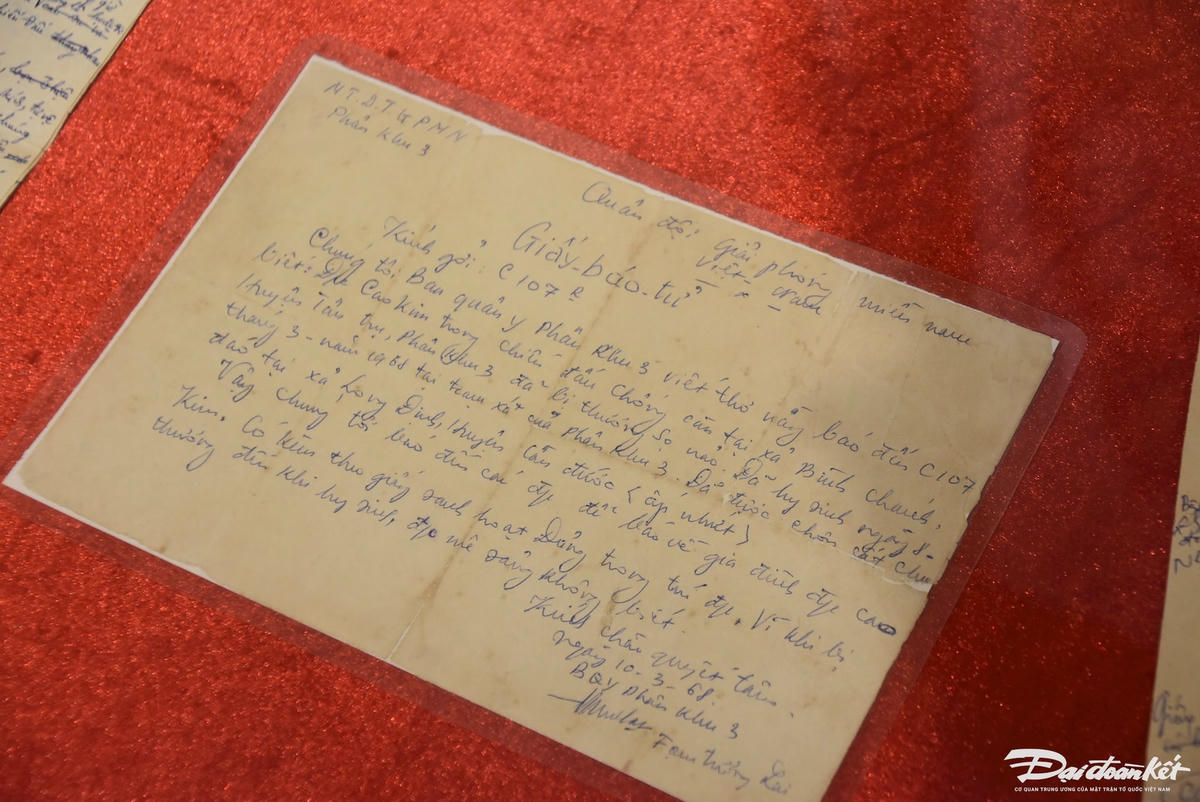 M.T.D.T.G.P.M.N
Phân Khu 3
Quân đội giải phóng miền nam
Việt - Nam
Giấy-báo-tử
Kính gởi: C107
Chúng tôi Ban quân y phân khu 3 viết thơ nầy báo đến C107
biết: Đ/c Cao Kim trong chiến đấu chống càn tại xã Bình chánh,
Huyện Tân trụ, phân khu 3 đã bị thương sọ nảo. Đã hy sinh ngày 8-
tháng 3 - năm 1968 tại trạm xá của phân khu 3. Đã được chôn cất chu
đáo tại xã Long Định, Huyện Cần đước (ấp nhứt)
Vậy chúng tôi báo đến các đ/c để báo về gia đình đ/c cao
Kim. Có kèm theo giấy sanh hoạt Đảng trong túi đ/c. Vì khi bị
thương đến khi hy sinh, đ/c mê sảng không biết.
Kính chào quyết tâm.
ngày 10-3-68
BQY phân khu 3
Đại đoàn kết
CƠ QUAN TRUNG ƯƠNG CỦA MẶT TRẬN TỔ QUỐC VIỆT NAM